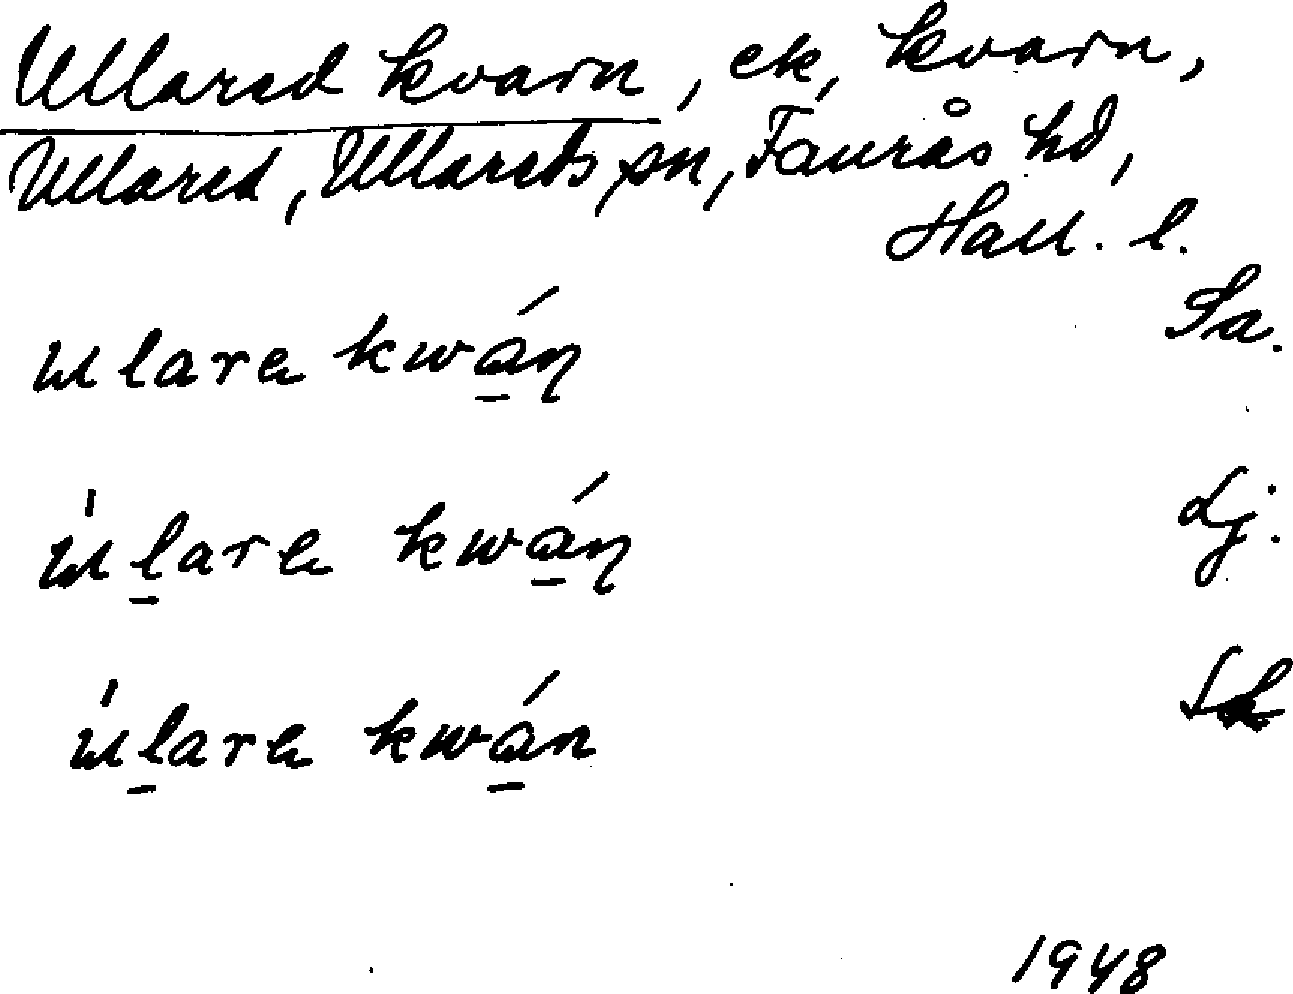 Ullared kvarn, ek, kvarn,
Ullared, Ullareds sn, Faurås hd,
Hall. l.
Sa.
ulare kwá̱ɳ
Lj.
úḻare kwá̱ɳ
úḻare kwá̱n
1948